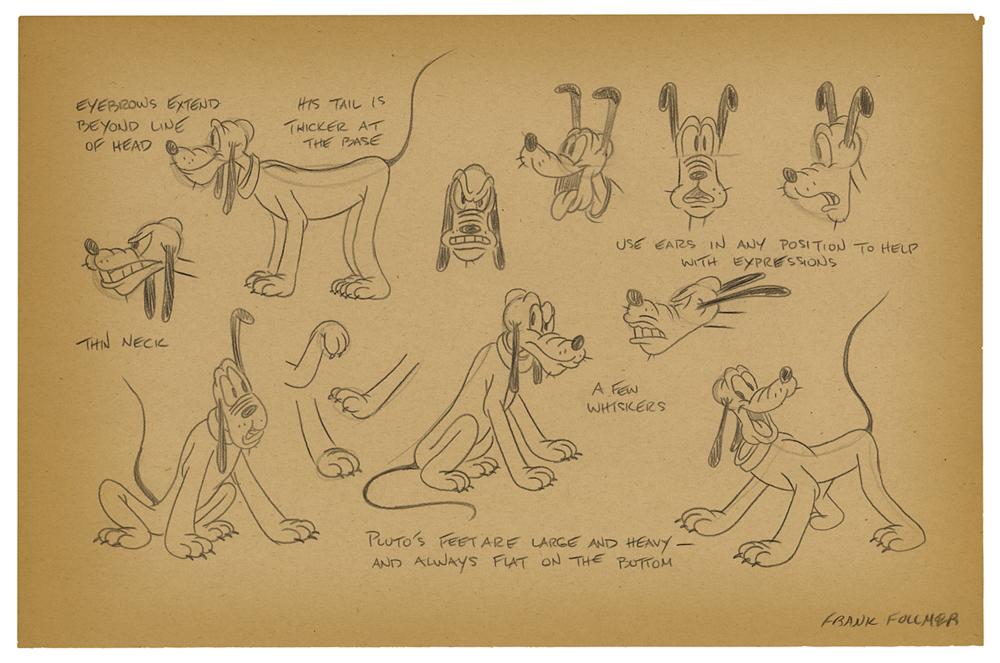 EYEBROWS EXTEND
BEYOND LINE
OF HEAD
HIS TAIL IS
THICKER AT
THE BASE
USE EARS IN ANY POSITION TO HELP
WITH EXPRESSIONS
THIN NECK
A FEW
WHISKERS
PLUTO'S FEET ARE LARGE AND HEAVY —
AND ALWAYS FLAT ON THE BOTTOM
FRANK FOLLMER